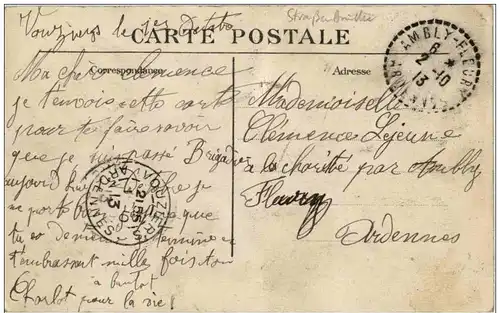 Vouziers le 1er octobre
CARTE POSTALE
Correspondance
Adresse
Ma cher Clemence
je t'envois cette carte
pour te faire savoir
que je suis passé Brigadier
aujourd'hui je
me porte que
tu es de même termine en
t'embrassant mille fois ton
a bientot
Charlot pour la vie!
Mademoiselle
Clémence Lejeune
a la charité par Ambly
Fleury
Ardennes
AMBLY-FLEURY
6 *
2 -10
13
ARDENNES
VOUZIERS
ARDENNES